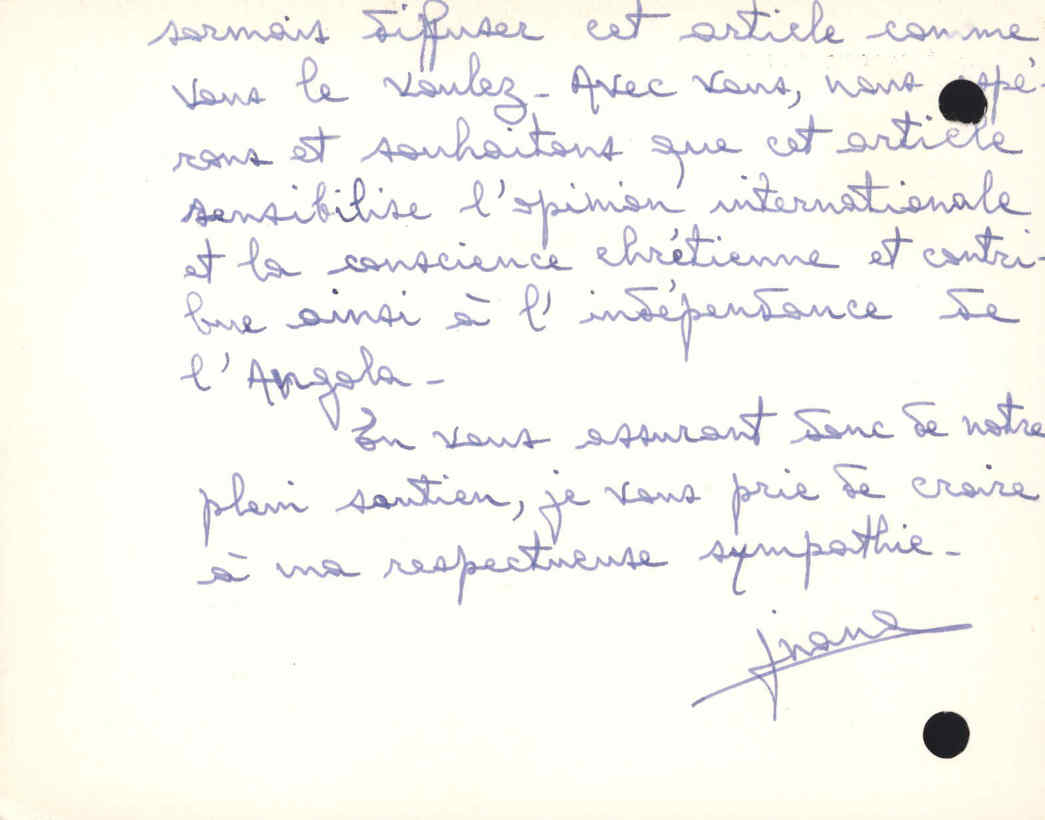 sormais diffuser cet article comme
vous le voulez - Avec vous, nous espé-
rons et souhaitons que cet article
sensibilise l'opinion internationale
et la conscience chrétienne et contri-
bue ainsi à l'indépendance de
l'Angola -
En vous assurant donc de notre
plein soutien, je vous prie de croire
à ma respectueuse sympathie -